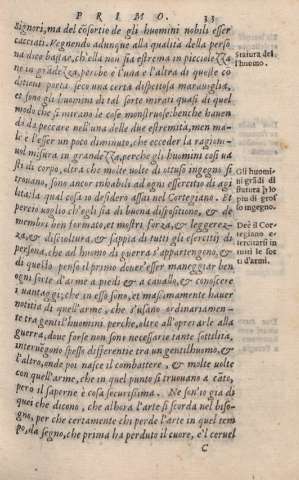 PRIMO. 33
Signori, ma del cōsortio de gli huomini nobili esser
cacciati. Vegnendo adunque alla qualità della perso
na dico bastar, ch'ella non sia estrema in picciolezza
ne in grādezza, perche e l'una e l'altra di queste cō
ditioni porta seco una certa dispettosa marauiglia,
et sono gli huomini di tal sorte mirati quasi di quel
modo che si mirano le cose monstruose: benche hauen
do da peccare nell'una delle due estremità, men ma-
le è l'esser un poco diminuto, che ecceder la ragione
uol misura in grandezza, perche gli huomini così ua
sti di corpo, oltra che molte uolte di ottuso ingegno si
trouano, sono ancor inhabili ad ogni essercitio di agi
lità, la qual cosa io desidero assai nel Cortegiano. Et
perciò uoglio ch'egli sia di buona dispositione, & de
membri ben formato, et mostri forza, & leggerez-
za, & discioltura, & sappia di tutti gli esercitij di
persona, che ad huomo di guerra s'appartengono, &
di questo penso il primo deuer'esser maneggiar ben
ogni sorte d'arme a piedi & a cauallo, & conoscere
i uantaggi, che in esso sono, et massimamente hauer
notitia di quell'arme, che s'usano ordinariamen-
te tra gentil'huomini perche, oltre all'operarle alla
guerra, doue forse non sono necessarie tante sottilità,
interuengono spesso differentie tra un gentilhuomo, &
l'altro, onde poi nasce il combattere. & molte uolte
con quell'arme, che in quel punto si truouano a cāto,
però il saperne è cosa securissima. Ne son'io già di
ques che dicono, che alhora l'arte si scorda nel biso-
gno, per che certamente chi perde l'arte in quel tem
po, da segno, che prima ha perduto il cuore, e'l ceruel
C
Statura del
l'huomo.
Gli huomi-
ni grādi di
statura p lo
piu di gros
so ingegno.
Deè il Cor
tegiano e-
sercitarsi in
tutti le sor
ti d'armi.